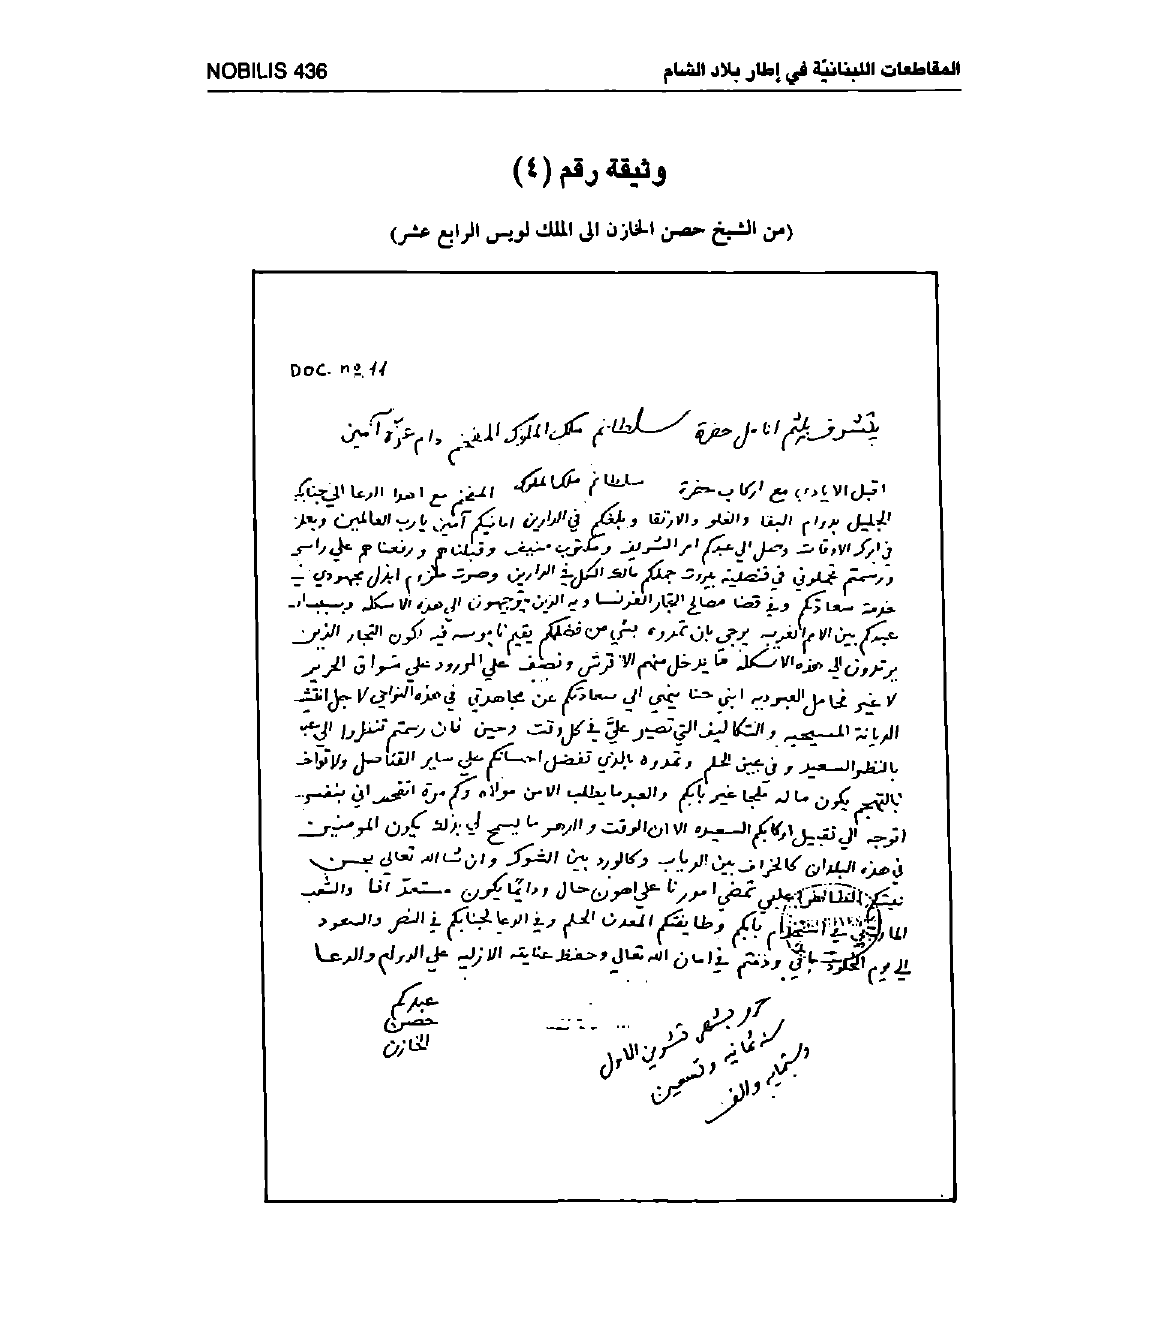 المقاطعات اللبنانيّة في إطار بلاد الشام
NOBILIS 436
وثيقة رقم (٤)
(من الشيخ حصن الخازن الى الملك لويس الرابع عشر)
DOC. nº 11
يتشرف بلثم انامل حضرة سلطانهم ملك الملوك المفخم دام عزّه آمين
اقبل الايادي مع اركاب حضرة سلطانهم ملك الملوك المفخم مع اهدا الدعا الى جنابكم
الجليل بدوام البقا والعلو والارتقا وبلغكم في الدارين امانيكم آمين يارب العالمين وبعد
في ابرك الاوقات وصل الى عبدكم امر الشريف ومكتوب منيف وقبلناهم ورفعناهم على راسي
ورسمتم تجعلوني في قنصلية بيروت جعلكم مالك الكل في الدارين وصرت ملزوم ابذل مجهودي في
خدمة سعادتكم وفي قضا مصالح التجار الفرنساويه الذين يتوجهون الى هذه الاسكله وبسبب ان
عبدكم بين الامم الغريبه يرجي بان تمدوه بشي من فضلكم يقيم ناموسه فيه لكون التجار الذين
يردون الى هذه الاسكله ما يدخل منهم الا قرش ونصف على المورود على شواق الحرير
لا غير فحامل العبوديه ابني حنا ينهي الى سعادتكم عن مجاهدتي في هذه النواحي لاجل
الديانة المسيحيه والتكاليف التي تصير عليّ في كل وقت وحين فان رسمتم تنظروا الى عبدكم
بالنظر السعيد وفي عين الحلم وتمدوه بالذي تفضل احسانكم على ساير القناصل ولا
يكون ما له ملجا غير بابكم والعبد ما يطلب الا من مولاه وكم مرة اني بنفسي
اتوجه الى تقبيل اركابكم السعيده الا ان الوقت والدهر ما يسمح لي بذلك لكون المومنين
في هذه البلدان كالخراف بين الدياب وكالورد بين الشوك وان شا الله تعالى بحسن
تمضي امورنا على اهون حال ودائما يكون مستعد والشعب
في بابكم وطايفتكم المعدن الحلم وفي الدعا لجنابكم في النصر والسعود
الى يوم ودمتم في امان الله تعالى وحفظ عنايته الازليه على الدوام والدعا
عبدكم
حصن
الخازن
حرر بشهر تشرين الاول
سنة ثمانيه وتسعين
وستمايه والف